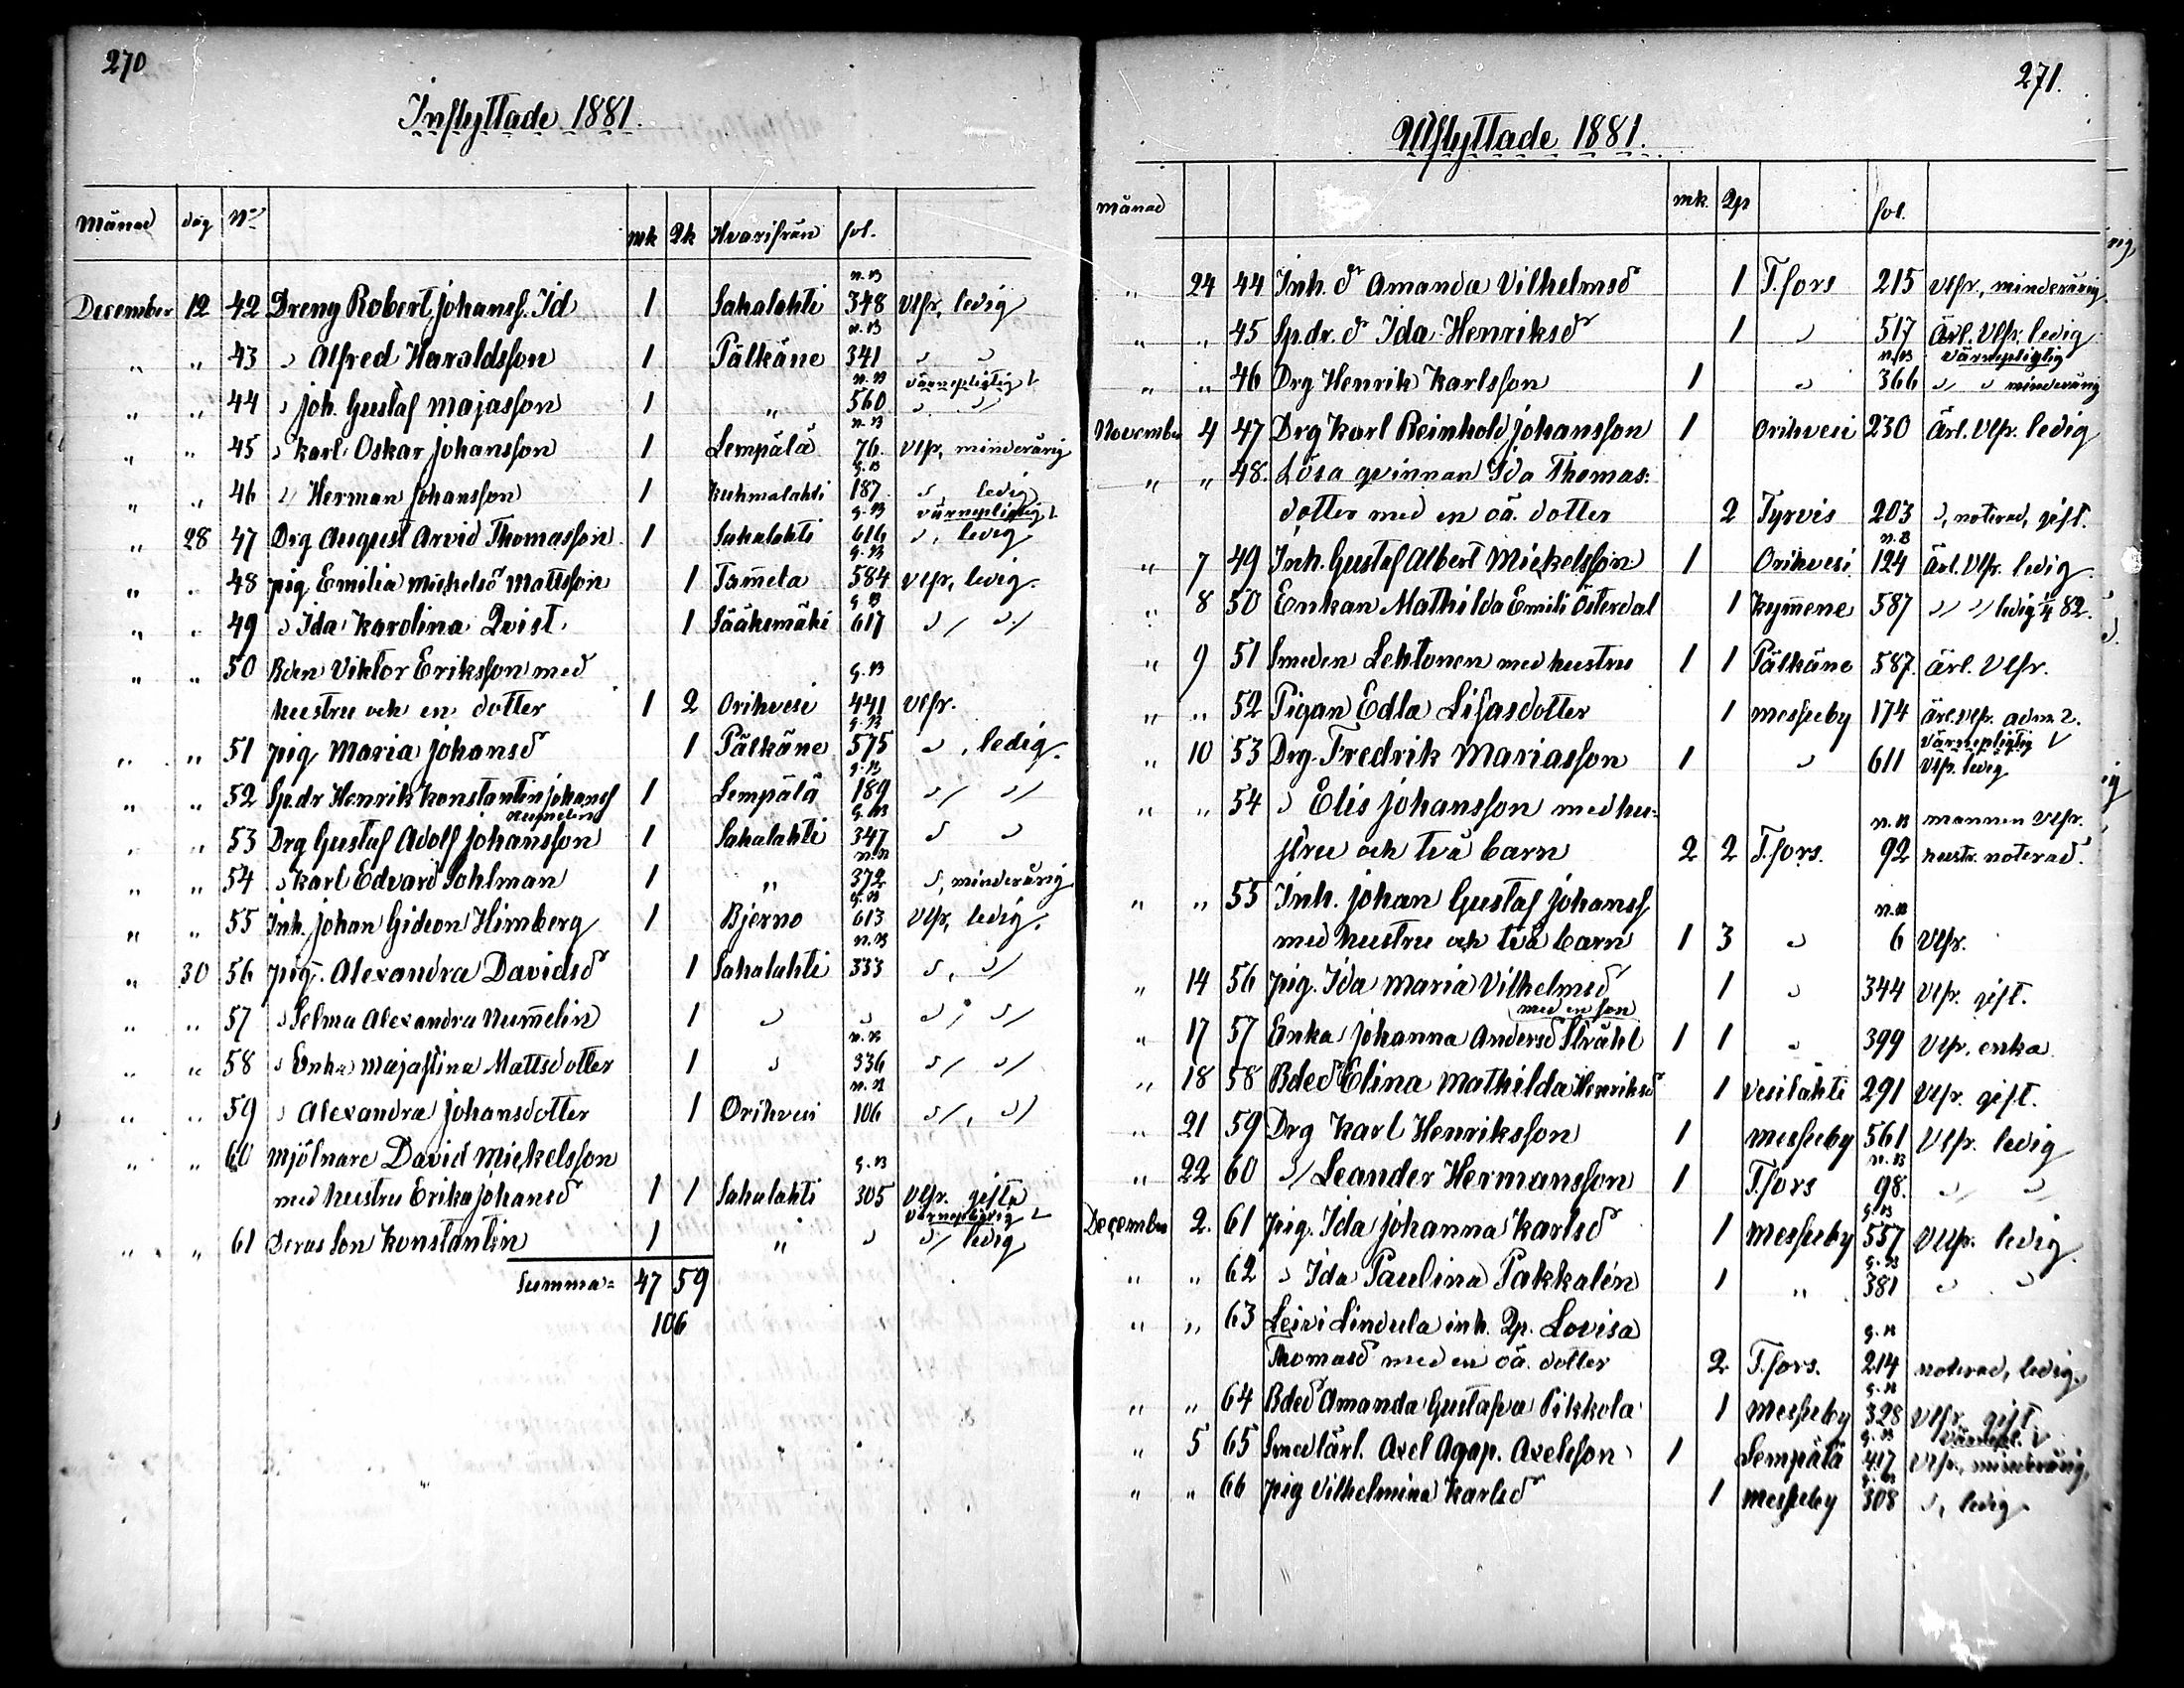 270
Inflyttade 1881.
Månad dag No mk Qk Hvarifrån fol.
December 12 42 Dreng Robert Johanss. Id 1 Sahalahti n.B 348 Vlfr, ledig
" " 43 " Alfred Haraldsson 1 Pälkäne n.B 341 " "
" " 44 " Joh. Gustaf Majasson 1 " n.B 560 värnepligtig " "
" " 45 " Karl Oskar Johansson 1 Lempälä n.B 76. Vlfr, minderårig
" " 46 " Herman Johansson 1 Kuhmalahti g.B 187 " ledig
" 28 47 Drg August Arvid Thomasson 1 Sahalahti g.B 616 värnepligtig ", ledig
" " 48 pig Emilia Mickelsd Mattsson 1 Tam̄ela g.B 584 Vlfr, ledig.
" " 49 " Ida Karolina Qvist. 1 Sääksmäki g.B 617 " "
" " 50 Bden Viktor Eriksson med
hustru och en dotter 1 2 Orihvesi g.B 441 Vlfr.
" " 51 pig Maria Johansd 1 Pälkäne g.B 575 ", ledig.
" " 52 Sp.dr Henrik Konstantin Johanss 1 Lempälä g.B 189 " "
" " 53 Drg Gustaf Adolf Johansson 1 Sahalahti g.B 347 " "
" " 54 " Karl Edvard Sohlman 1 " n.B 372 ", minderårig
" " 55 Inh. Johan Gideon Himberg 1 Bjerno g.B 613 Vlfr, ledig.
" 30 56 pig. Alexandra Davidsd 1 Sahalahti n.B 333 " "
" " 57 " Selma Alexandra Num̄elin 1 " " " "
" " 58 " Enka Majastina Mattsdotter 1 " n.B 336 " "
" " 59 " Alexandra Johansdotter 1 Orihvesi n.B 106 " "
" " 60 Mjölnare David Mickelsson
med hustru Erika Johansd 1 1 Sahalahti g.B 305 Vlfr. gifta
" " 61 Deras son Konstantin 1 " " värnepligtig " ledig
Summa= 47 59
106
271.
Utflyttade 1881.
Månad mk. Qp fol.
" 24 44 Inh. d Amanda Vilhelmsd 1 T.fors 215 Vlfr, minderårig
" " 45 Sp.dr. d Ida Henriksd 1 " 517 Ärl. Vlfr. ledig
" " 46 Drg Henrik Karlsson 1 " n.B 366 värnepligtig " " minderårig
November 4 47 Drg Karl Reinhold Johansson 1 Orihvesi 230 Ärl. Vlfr. ledig
" " 48. Lösa qvinnan Ida Thomas:
dotter med en oä. dotter 2 Tyrvis 203 ", noterad, gift.
" 7 49 Inh. Gustaf Albert Mickelsson 1 Orihvesi n.B 124 Ärl. Vlfr. ledig
" 8 50 Enkan Mathilda Emili Österdal 1 Kym̄ene 587 " " ledig 82.
" 9 51 Smeden Lehtonen med hustru 1 1 Pälkäne 587. Ärl. Vlfr.
" " 52 Pigan Edla Lisasdotter 1 Messuby 174 Ärl. Vlfr. adm 2.
" 10 53 Drg. Fredrik Mariasson 1 " 611 värnepligtig Vlfr. ledig
" " 54 " Elis Johansson med hu-
stru och två barn 2 2 T.fors. n.B 92 mannen Vlfr. hustr. noterad.
" " 55 Inh. Johan Gustaf Johanss.
med hustru och två barn 1 3 " n.B 6 Vlfr.
" 14 56 pig. Ida Maria Vilhelmsd 1 " 344 Vlfr. gift.
" 17 57 Enka Johanna Andersd Stråhl med en son 1 1 " 399 Vlfr. enka
" 18 58 Bded Elina Mathilda Henriksd 1 Vesilahti 291 Vlfr. gift.
" 21 59 Drg Karl Henriksson 1 Messuby 561 Vlfr. ledig
" 22 60 " Leander Hermansson 1 T.fors n.B 98. " "
December 2. 61 pig. Ida Johanna Karlsd 1 Messuby g.B 557 Vlfr. ledig
" " 62 " Ida Paulina Pakkalén 1 " g.B 381 " "
" " 63 Leivi Lindula inh. Qp. Lovisa
Thomasd med en oä. dotter 2 T.fors. g.B 214 noterad, ledig.
" " 64 Bded Amanda Gustafva Pikkola 1 Messuby g.B 328 Vlfr gift.
" 5 65 Smedlärl. Axel Agap. Axelsson 1 Lempälä g.B 417 värnepl. Vlfr, minderårig,
" " 66 pig Vilhelmina Karlsd 1 Messuby g.B 308 ", ledig